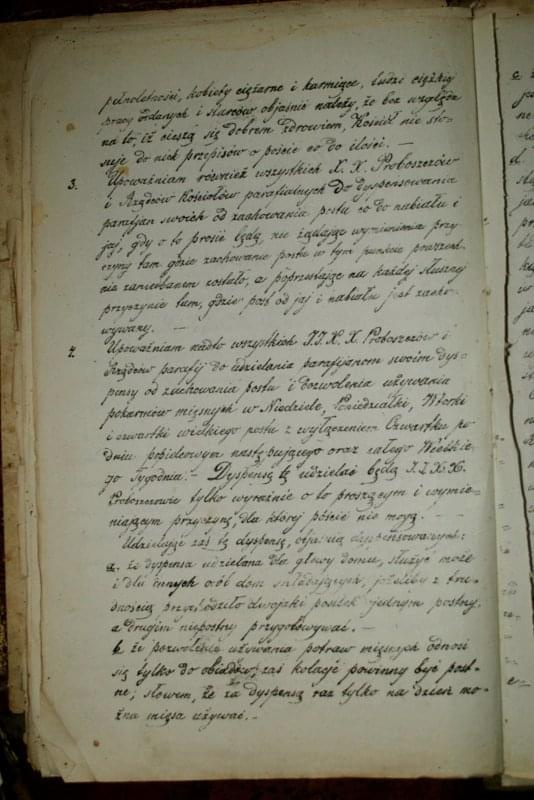 pełnoletności, kobiety ciężarne i karmiące, ludzi ciężkiéj
pracy oddanych i starców objaśnić należy, że bez względu
na to, iż cieszą się dobrem zdrowiem, Kościół nie sto-
suje do nich przepisów o poście co do ilości. —
3. Upoważniam również wszystkich X. X. Proboszczów
i Rządców Kościołów parafialnych do dyspensowania
parafjan swoich od zachowania postu co do nabiału i
jaj, gdy o to prosić będą, nie żądając wymienienia przy-
czyny tam gdzie zachowanie postu w tym punkcie powszech-
nie zaniedbanem zostało, a poprzestając na każdej słusznej
przyczynie tam, gdzie post od jaj i nabiału jest zacho-
wywany. —
4. Upoważniam nadto wszystkich J.J. X. X. Proboszczów i
Rządców parafij do udzielania parafijanom swoim dys-
pensy od zachowania postu i dozwolenia używania
pokarmów mięsnych w Niedziele, Poniedziałki, Wtorki
i czwartki wielkiego postu z wyłączeniem Czwartku po
dniu popielcowym następującego oraz całego Wielkie-
go Tygodnia. — Dyspensę tę udzielać będą J.J. X. X.
Proboszczowie tylko wyraźnie o to proszącym i wymie-
niającym przyczynę, dla której pościć nie mogą. —
Udzielając zaś tę dyspensę, objaśnią dyspensowanych:
a. że dyspensa udzielana dla głowy domu, służyć może
i dla innych osób dom składających, jeżeliby z tru-
dnością przychodziło dwojaki posiłek jednym postny,
a drugim niepostny przygotowywać. —
b. że pozwolenie używania potraw mięsnych odnosi
się tylko do obiadów, zaś kolacje powinny być post-
ne; słowem, że za dyspensą raz tylko na dzień mo-
żna mięsa używać. —